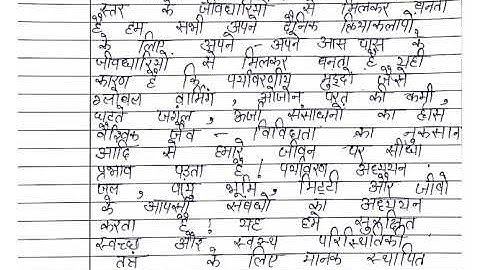 स्तर के जीवधारियों से मिलकर बनता
है हम सभी अपने दैनिक क्रियाकलापों
के लिए अपने - अपने आस पास के
जीवधारियों से मिलकर बनता है यही
कारण है कि पर्यावरणीय मुद्दों जैसे
ग्लोबल वार्मिंग, ओजोन परत की कमी,
घटते जंगल, ऊर्जा संसाधनों का ह्रास
वैश्विक जैव - विविधता का नुकसान
आदि से हमारे जीवन पर सीधा
प्रभाव पड़ता है! पर्यावरण अध्ययन
जल, वायु भूमि, मिट्टी और जीवों
के आपसी संबंधों का अध्ययन
करता है! यह हमें सुरक्षित
स्वच्छ और स्वस्थ पारिस्थितिकी
तंत्र के लिए मानक स्थापित